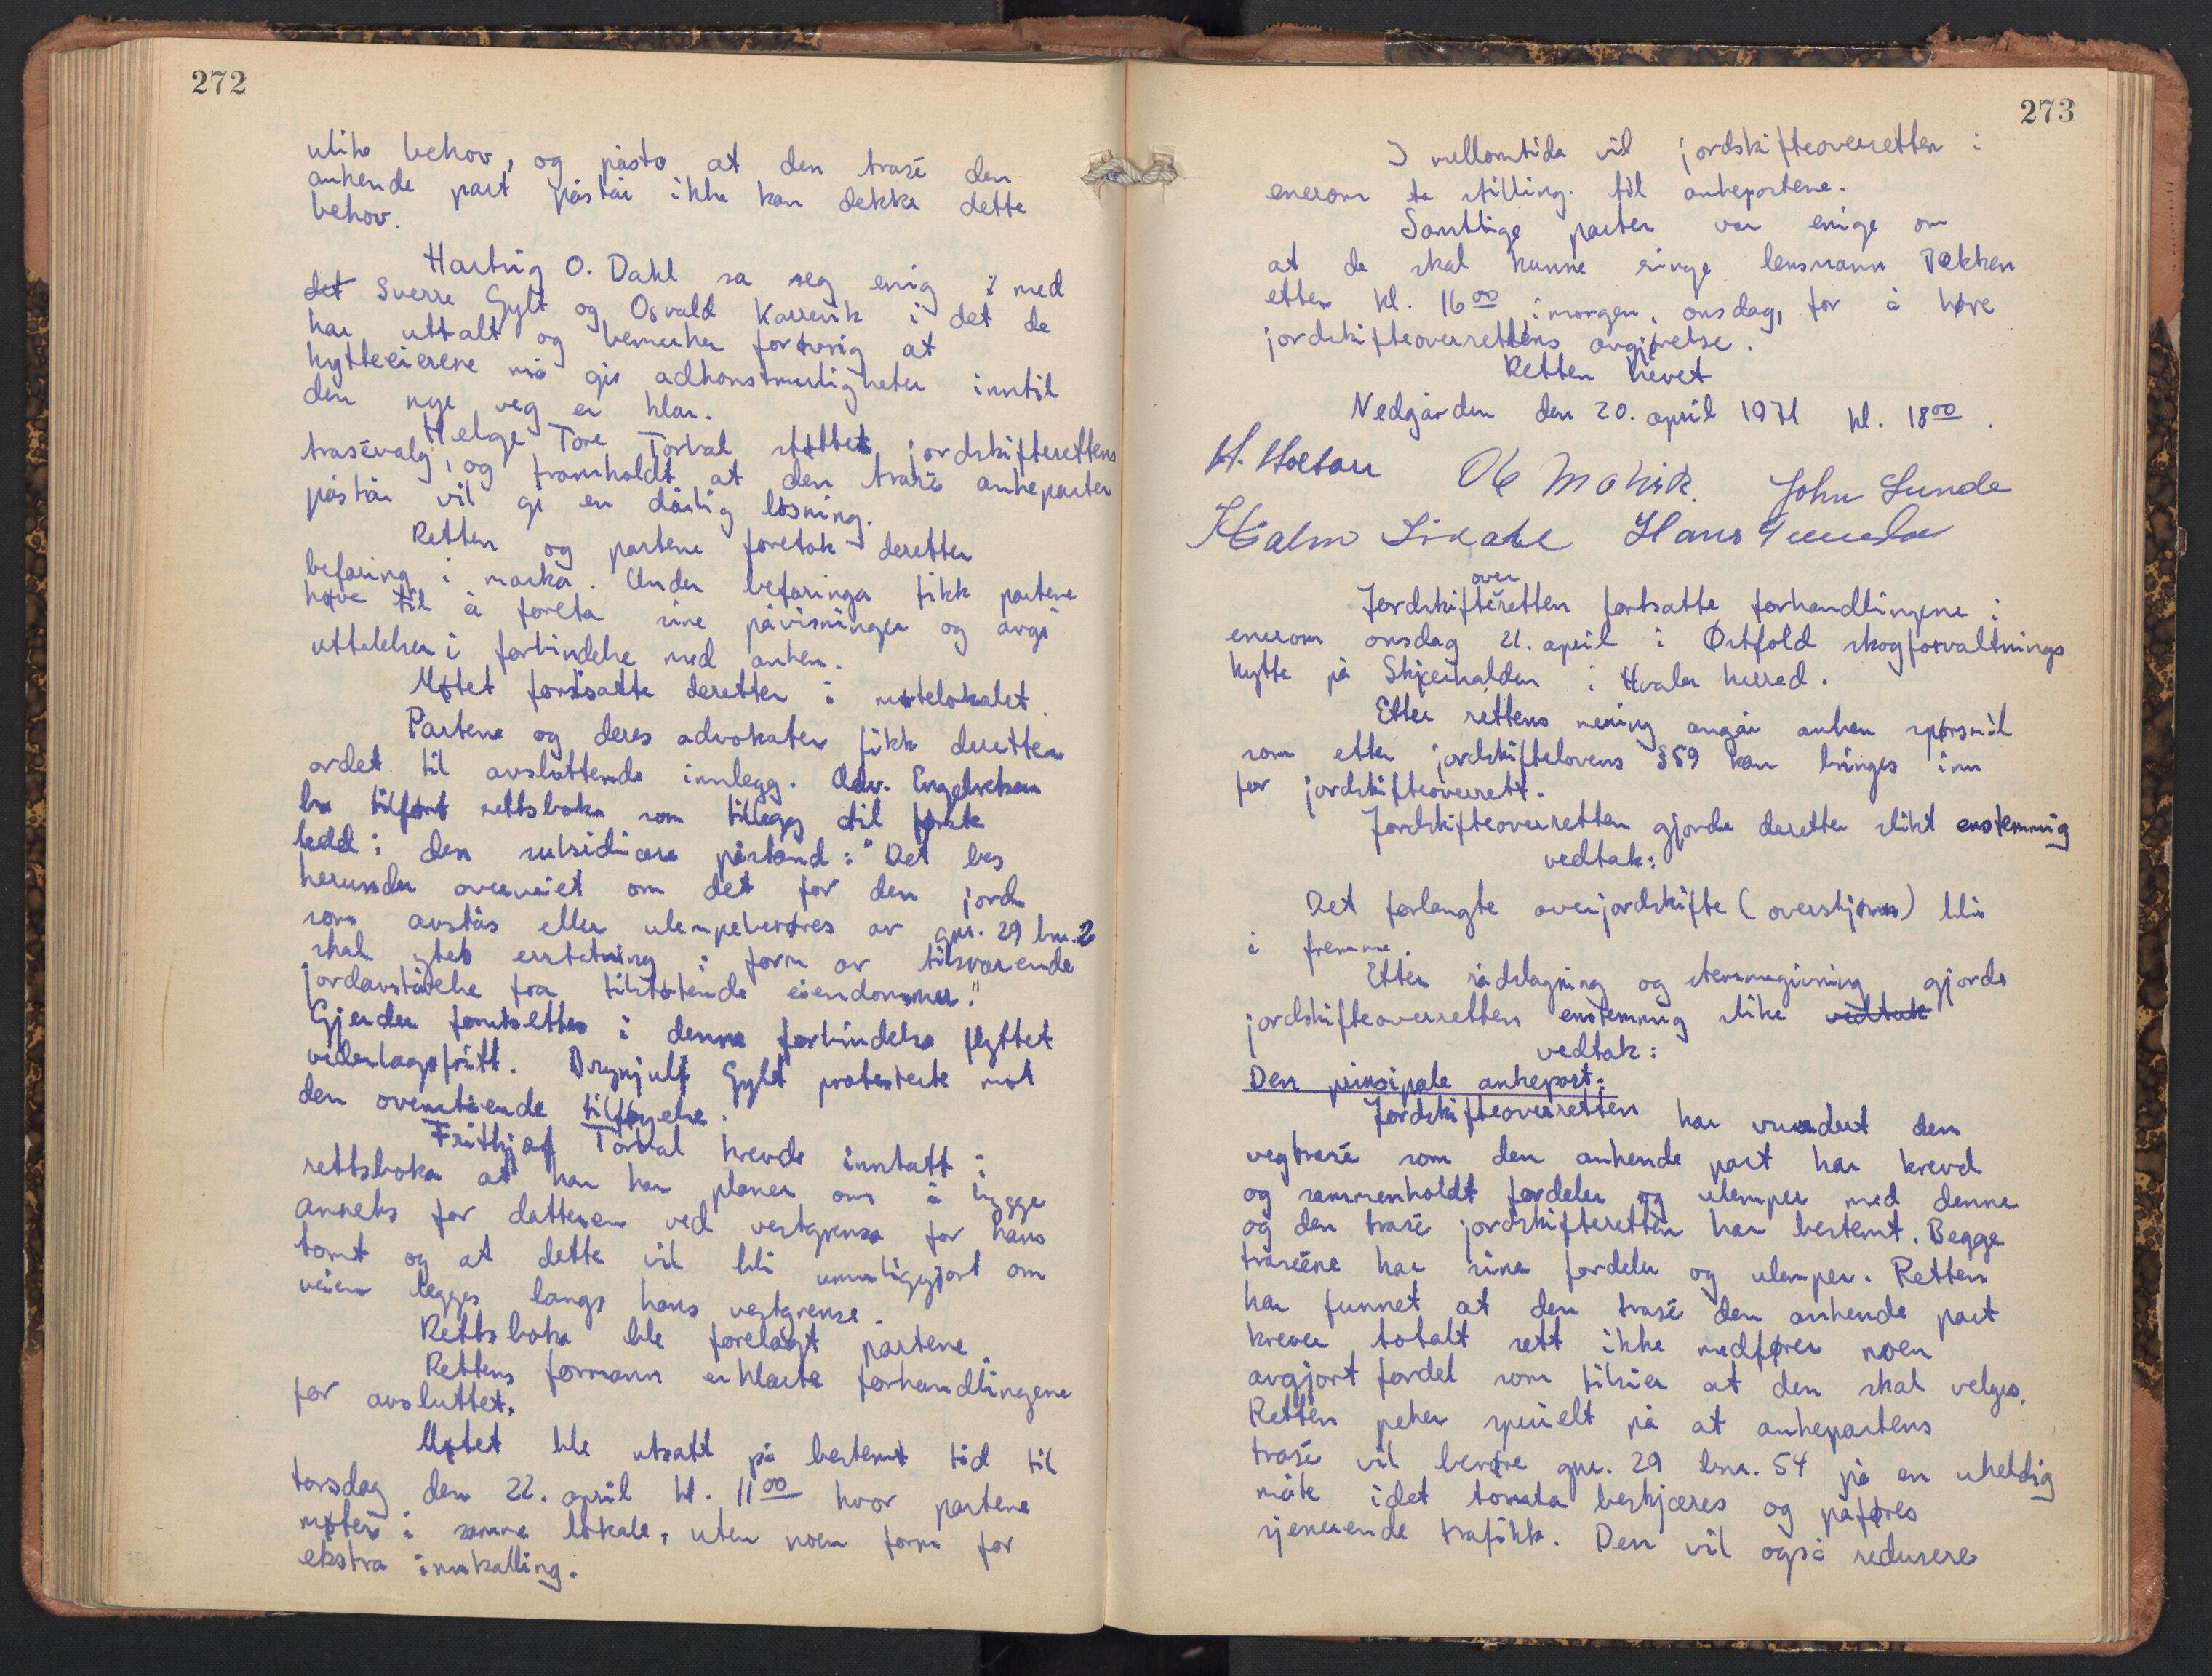 272
ulike behov, og påsto at den trasé den
ankende part påstår ikke kan dekke dette
behov.
Hartvig O. Dahl sa seg enig i med
det Sverre Gylt og Osvald Karrevik i det de
har uttalt og bemerker forøvrig at
hytteeierene må gis adkomstmuligheter inntil
den nye veg er klar.
Helge Tore Torkal støttet jordskifterettens
trasévalg, og framholdt at den trasé ankeparten
påstår vil gi en dårlig løsning.
Retten og partene foretok deretter
befaring i marka. Under befaringa fikk partene
høve til å foreta sine påvisninger og avgi
uttalelser i forbindelse med anken.
Møtet fortsatte deretter i møtelokalet.
Partene og deres advokater fikk deretter
ordet til avsluttende innlegg. Adv. Engebretsen
ba tilført rettsboka som tillegg til første
ledd i den subsidiære påstand: "Det bes
herunder overveiet om det for den jord
som avstås eller ulempeberøres av gnr. 29 bnr. 2
skal ytes erstatning i form av tilsvarende
jordavståelse fra tilstøtende eiendommer."
Gjerder forutsettes i denne forbindelse flyttet
vederlagsfritt. Brynjulf Gylt protesterte mot
den ovenstående tilføyelse.
Frithjof Torkal krevde inntatt i
rettsboka at han har planer om å bygge
anneks for datteren ved vestgrensa for hans
tomt og at dette vil bli umuliggjort om
veien legges langs hans vestgrense.
Rettsboka ble forelagt partene.
Rettens formann erklærte forhandlingene
for avsluttet.
Møtet ble utsatt på bestemt tid til
torsdag den 22. april kl. 11 00 hvor partene
møter i samme lokale, uten noen form for
ekstra innkalling.
273
I mellomtida vil jordskifteoverretten i
enerom ta stilling til ankepostene.
Samtlige parter var enige om
at de skal kunne ringe lensmann Bekken
etter kl. 16 00 i morgen, onsdag, for å høre
jordskifteoverrettens avgjørelse.
Retten hevet
Nedgården den 20. april 1971 kl. 18 00.
H. Holtan Ole John Lunde
Hans
Jordskifteoverretten fortsatte forhandlingene i
enerom onsdag 21. april i Østfold skogforvaltnings
hytte på Skjærhalden i Hvaler herred.
Etter rettens mening angår anken spørsmål
som etter jordskiftelovens § 59 kan bringes inn
for jordskifteoverrett.
Jordskifteoverretten gjorde deretter slikt enstemmig
vedtak:
Det forlangte overjordskifte (overskjønn) blir
å fremme.
Etter rådslagning og stemmegivning gjorde
jordskifteoverretten enstemmig slike vedtak
vedtak:
Den prinsipale ankepost:
Jordskifteoverretten har vurdert den
vegtrasé som den ankende part har krevd
og sammenholdt fordeler og ulemper med denne
og den trasé jordskifteretten har bestemt. Begge
traséene har sine fordeler og ulemper. Retten
har funnet at den trasé den ankende part
krever totalt sett ikke medfører noen
avgjort fordel som tilsier at den skal velges.
Retten peker spesielt på at ankepartens
trasé vil berøre gnr. 29 bnr. 54 på en uheldig
måte idet tomta beskjæres og påføres
sjenerende trafikk. Den vil også redusere